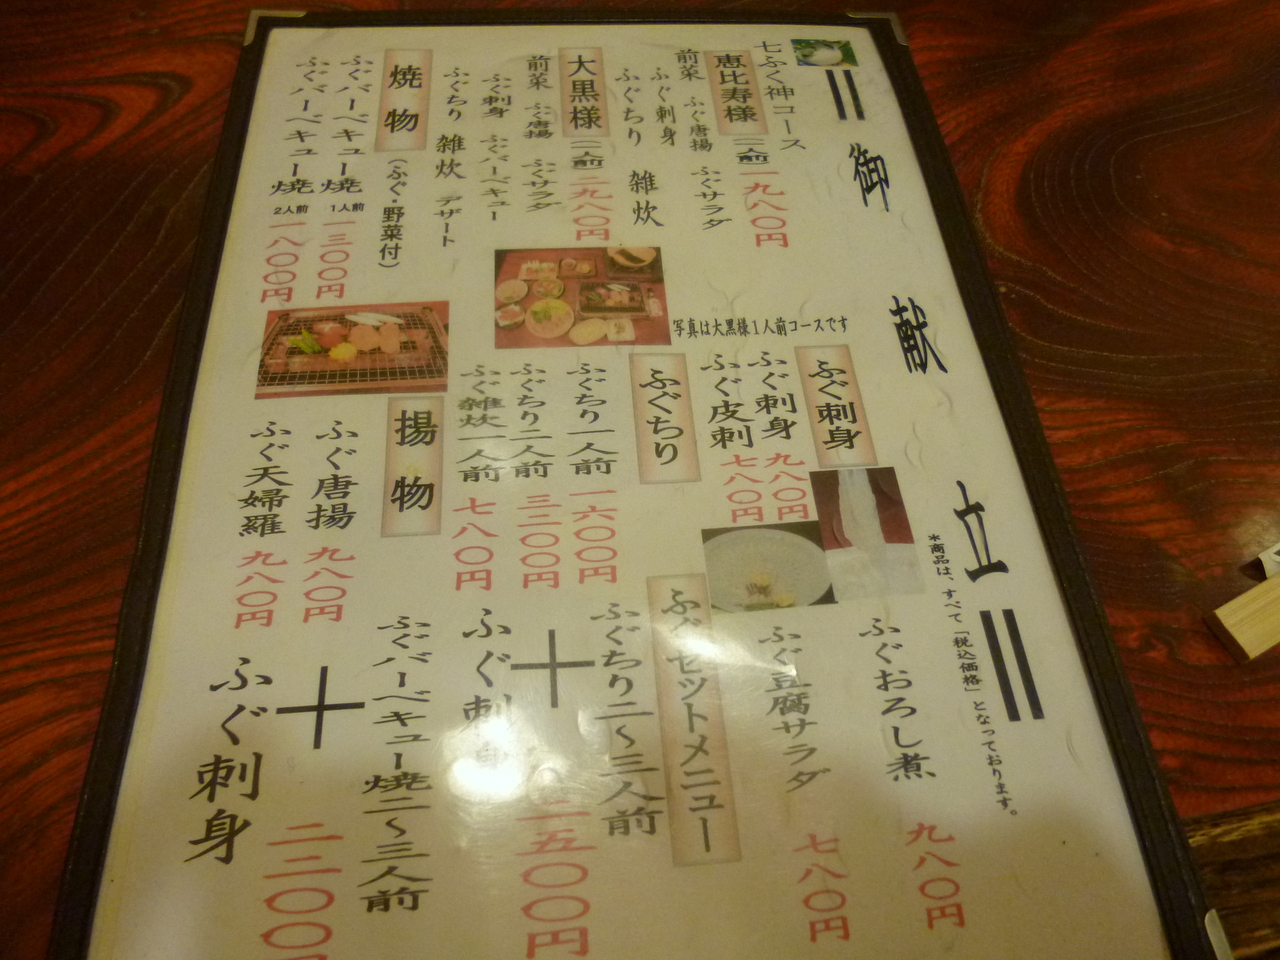 御献立
*商品は、すべて「税込価格」となっております。
七ふく神コース
恵比寿様(一人前)一九八〇円
前菜 ふぐ唐揚 ふぐサラダ
ふぐ刺身
ふぐちり 雑炊
大黒様(一人前)二九八〇円
前菜 ふぐ唐揚 ふぐサラダ
ふぐ刺身 ふぐバーベキュー
ふぐちり 雑炊 デザート
焼物(ふぐ・野菜付)
ふぐバーベキュー焼 1人前 一三〇〇円
ふぐバーベキュー焼 2人前 一八〇〇円
写真は大黒様1人前コースです
ふぐ刺身
ふぐ刺身 九八〇円
ふぐ皮刺 七八〇円
ふぐちり
ふぐちり一人前 一六〇〇円
ふぐちり二人前 三二〇〇円
ふぐ雑炊一人前 七八〇円
揚物
ふぐ唐揚 九八〇円
ふぐ天婦羅 九八〇円
ふぐおろし煮 九八〇円
ふぐ豆腐サラダ 七八〇円
ふぐセットメニュー
ふぐちり二〜三人前
+
ふぐ刺身 二五〇〇円
ふぐバーベキュー焼二〜三人前
+
ふぐ刺身 二二〇〇